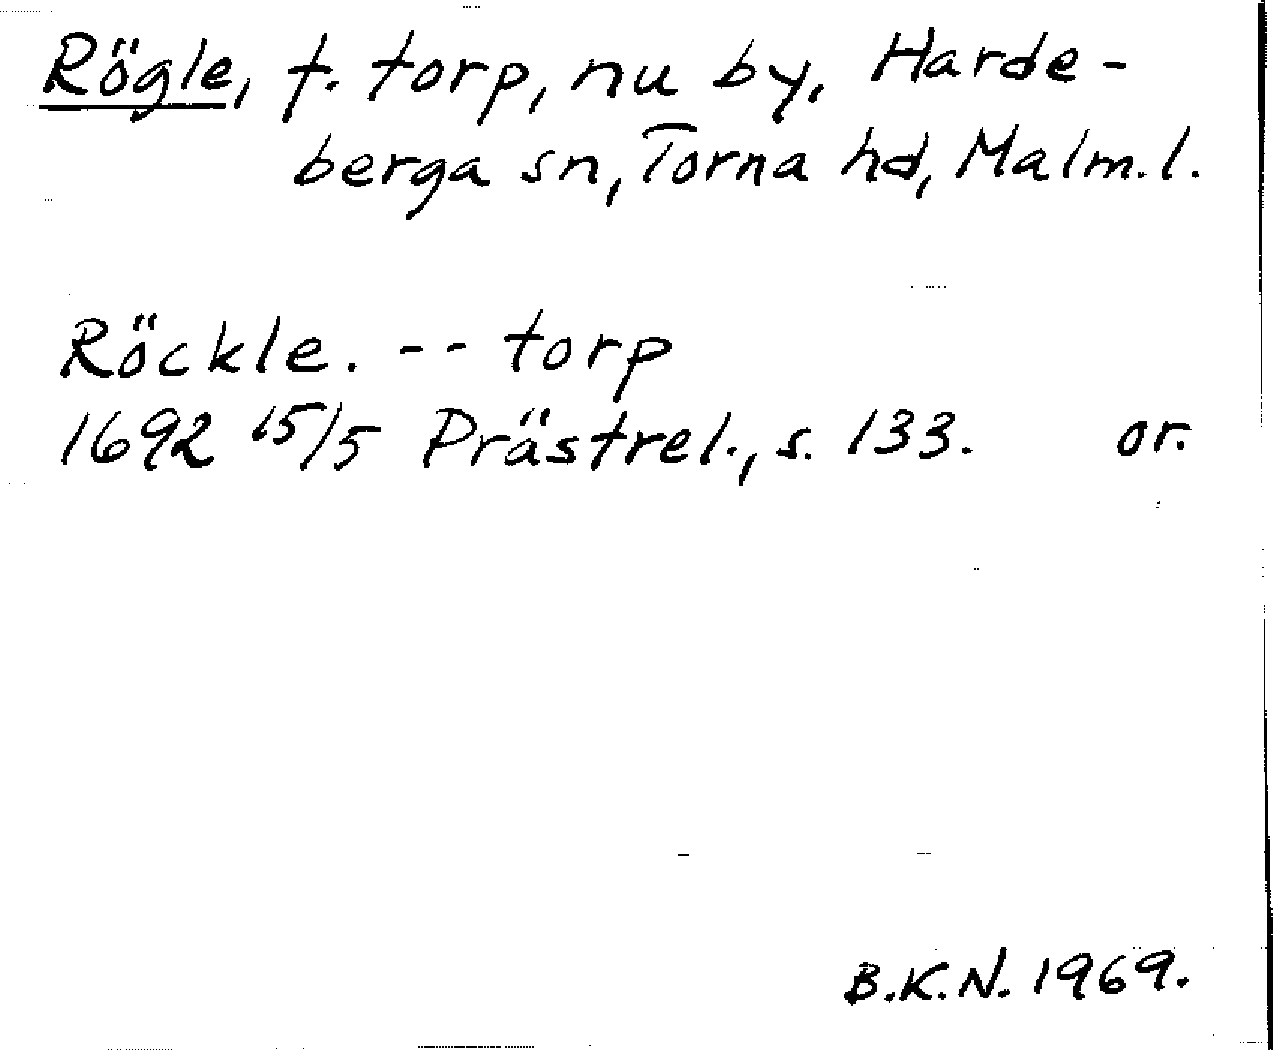 Rögle, f. torp, nu by, Harde-
berga sn, Torna hd, Malm. l.
Röckle. -- torp
1692 15/5 Prästrel., s. 133. or.
B.K.N. 1969.